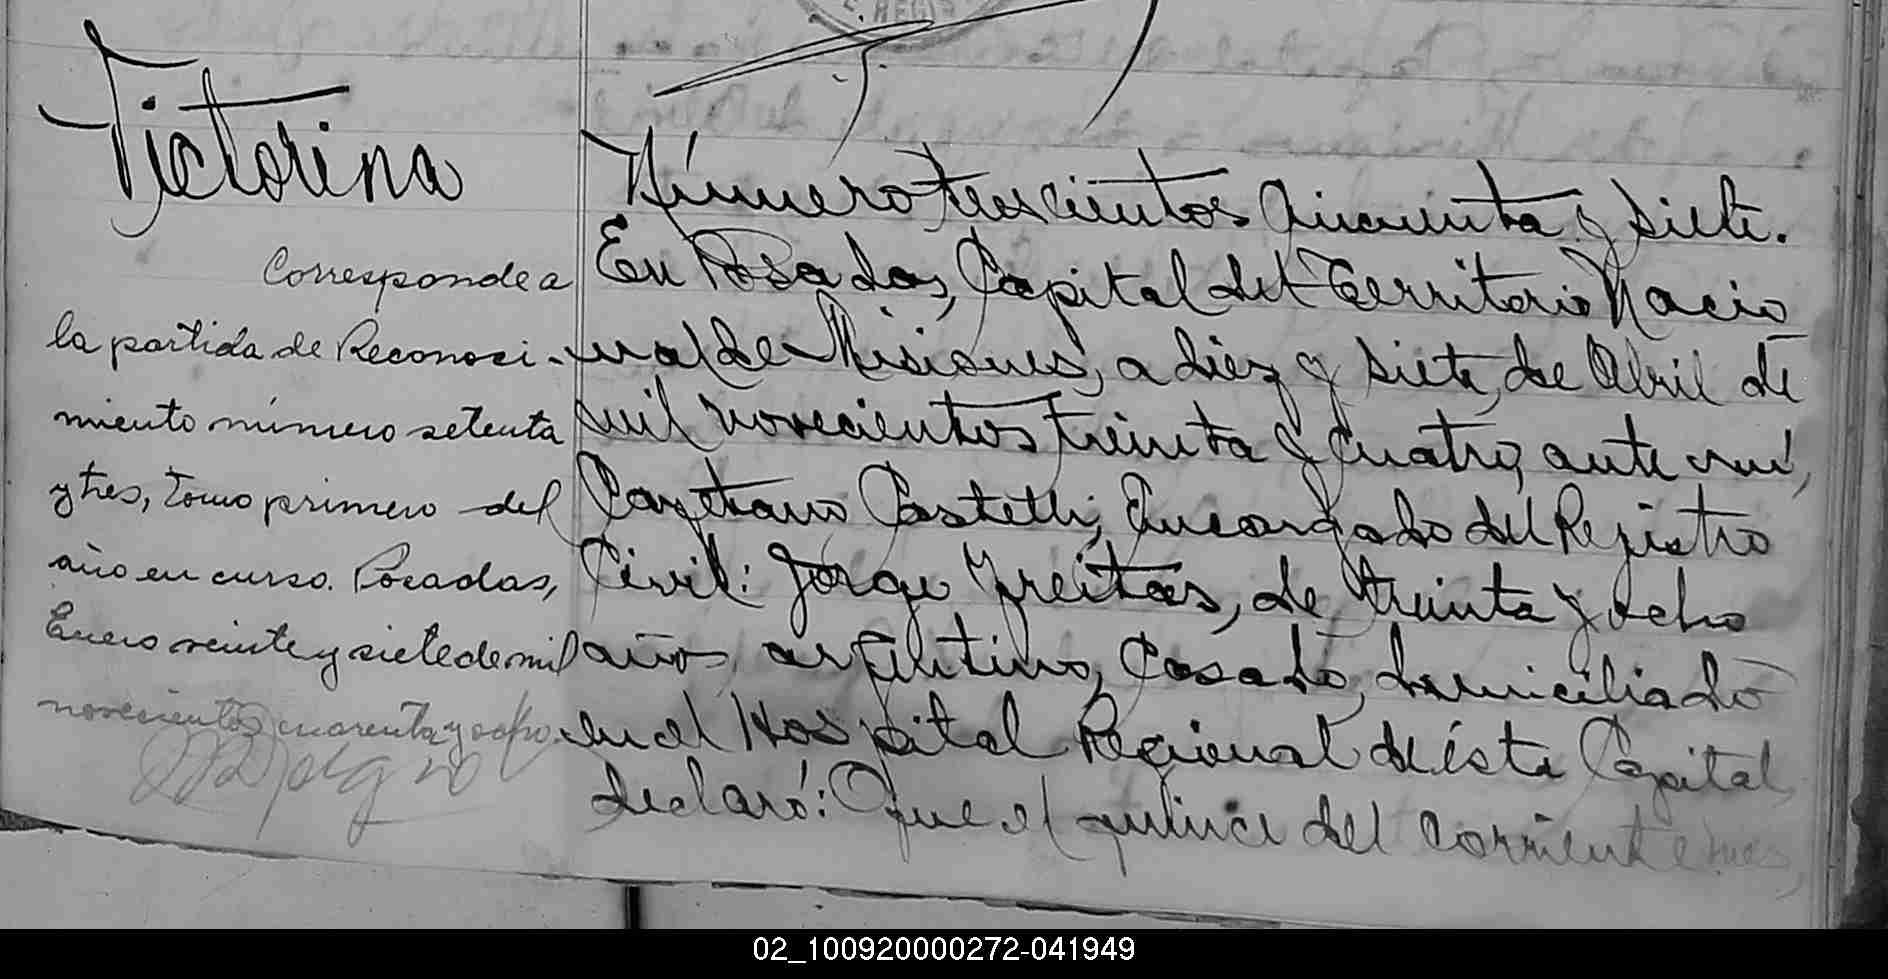 C. REGIS
Victorina
Corresponde a
la partida de Reconoci-
miento número setenta
y tres, tomo primero del
año en curso. Posadas,
Enero veinte y siete de mil
novecientos cuarenta y ocho.
Número trescientos cincuenta y siete.
En Posadas, Capital del Territorio Nacio
nal de Misiones, a diez y siete, de Abril de
mil novecientos treinta y cuatro, ante mí,
Cayetano Castelli, Encargado del Registro
Civil: Jorge Freitas, de treinta y ocho
años, argentino, casado, domiciliado
en el Hospital Regional de ésta Capital,
declaró: Que el quince del corriente mes,
02_100920000272-041949